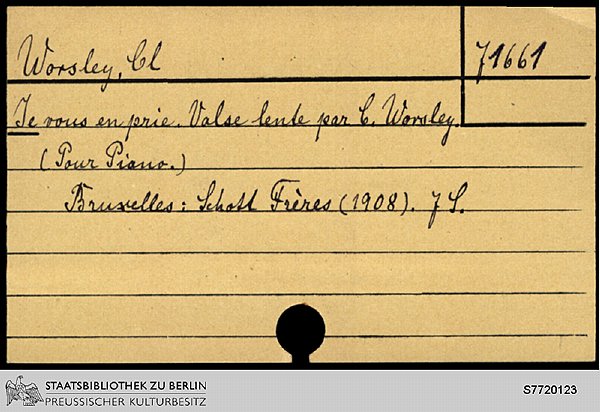 Worsley, Cl
71661
Je vous en prie. Valse lente par C. Worsley.
(Pour Piano.)
Bruxelles: Schott Frères (1908). 7 S.
STAATSBIBLIOTHEK ZU BERLIN
PREUSSISCHER KULTURBESITZ
S7720123